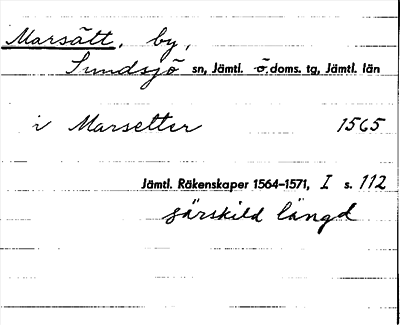 Marsätt, by,
Sundsjö sn, Jämtl. ö. doms. tg, Jämtl. län
i Marsetter 1565
Jämtl. Räkenskaper 1564–1571, I s. 112
särskild längd